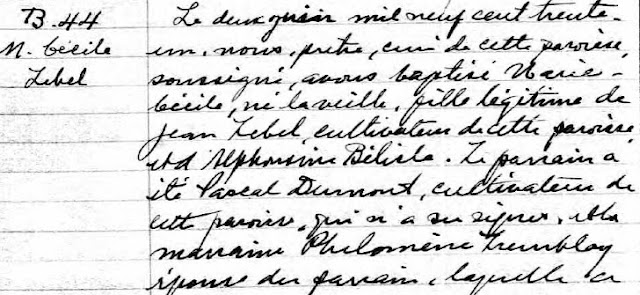 B.44
M. Cécile
Lebel
Le deux juin mil neuf cent trente-
un, nous, prêtre, curé de cette paroisse,
soussigné, avons baptisé Marie-
Cécile, né la veille, fille légitime de
Jean Lebel, cultivateur de cette paroisse
et d'Alphonsine Bélisle. Le parrain a
été Pascal Dumont, cultivateur de
cette paroisse, qui n'a su signer, et la
marraine Philomène Tremblay
épouse du parrain, laquelle a